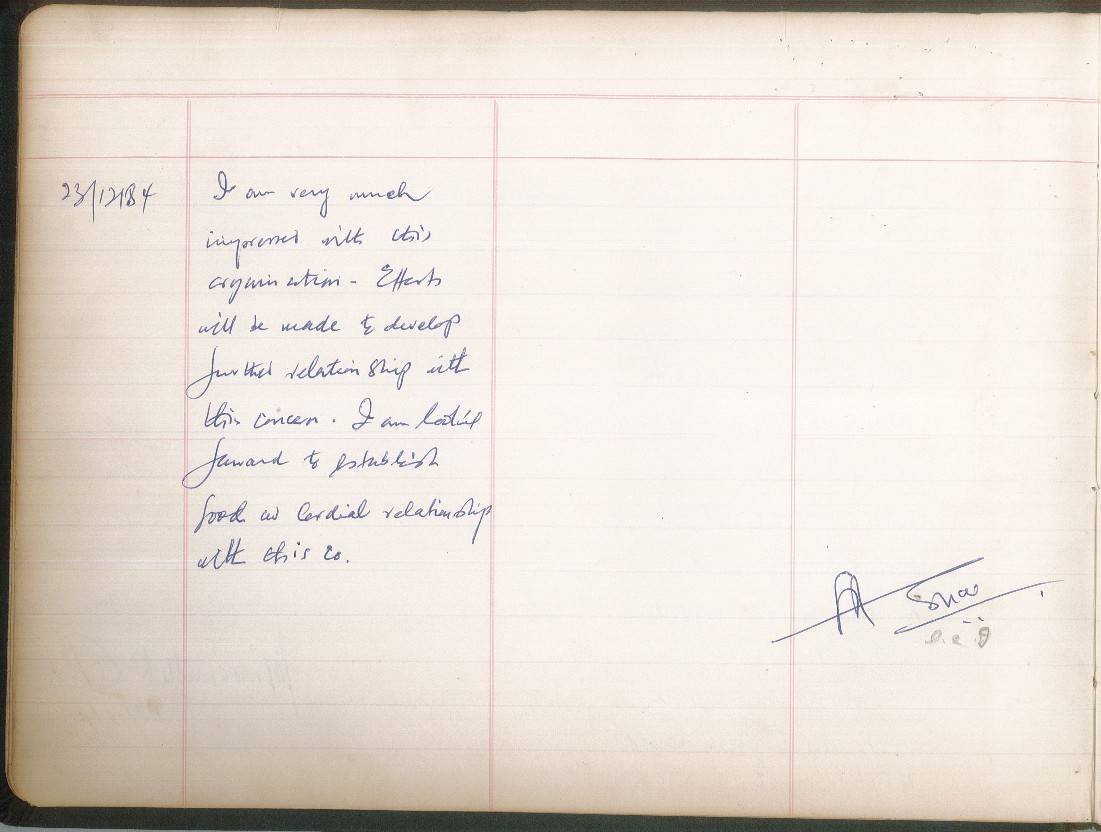 23/12/84
I am very much
impressed with this
organisation - Efforts
will be made to develop
further relationship with
this concern. I am looking
forward to establish
good and cordial relationship
with this co.